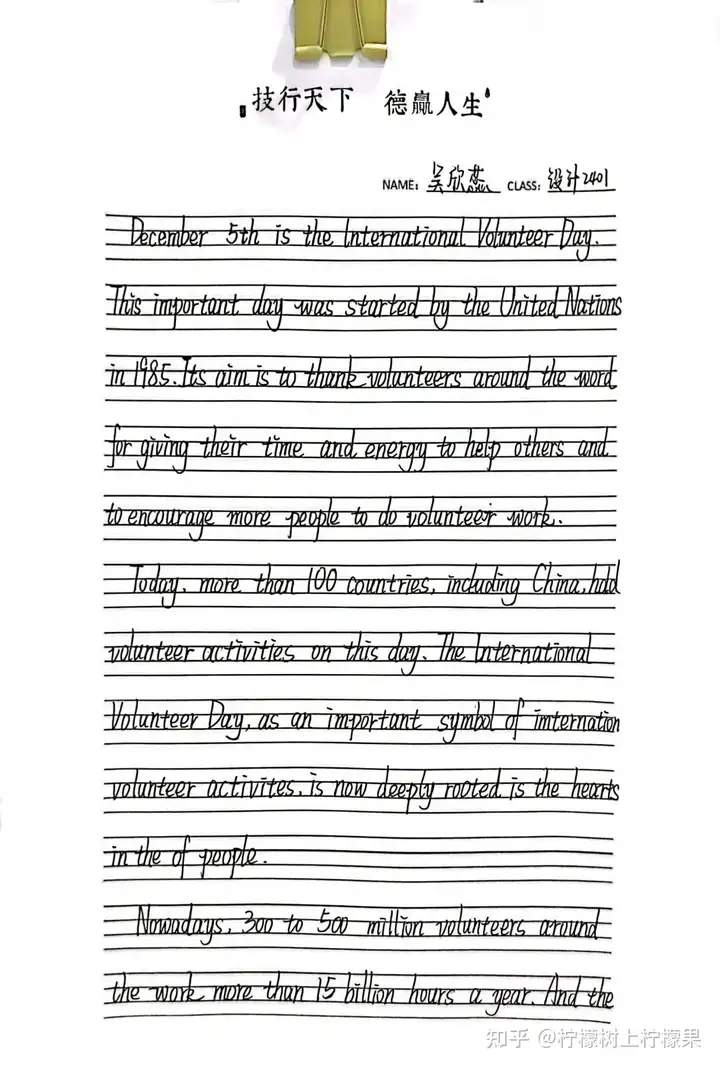 技行天下 德赢人生
NAME: 吴欣蕊 CLASS: 设计2401
December 5th is the International Volunteer Day.
This important day was started by the United Nations
in 1985. Its aim is to thank volunteers around the word
for giving their time and energy to help others and
to encourage more people to do volunteer work.
Today, more than 100 countries, including China, hold
volunteer activities on this day. The International
Volunteer Day, as an important symbol of internation
volunteer activites, is now deeply rooted is the hearts
in the of people.
Nowadays, 300 to 500 million volunteers around
the work more than 15 billion hours a year. And the
知乎 @柠檬树上柠檬果